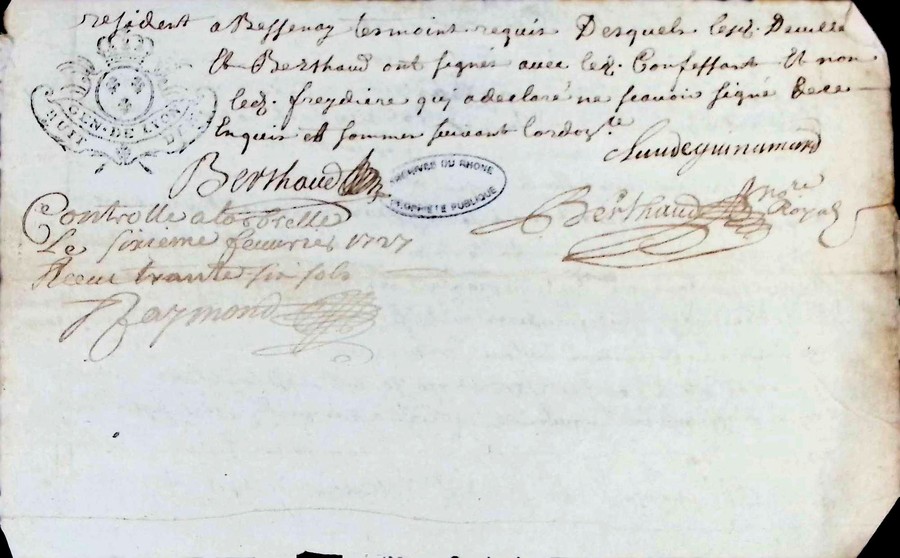 resident a Bessenay tesmoint requis Desquels lesd. Deville
Et Berthaud ont signés avec led. Confessant Et non
led. freydiere qui a declaré ne scavoir signé de ce
Enquis et sommer suivant lordoce
GEN·DE LYON
HUIT DE
claudeguinamard
Berthaud
ARCHIVES DU RHONE
PROPRIÉTÉ PUBLIQUE
Berthaud Nore Royal
Controlle a larbrelle
Le sixieme feuvrier 1727
Receu trante six sols
Raymond